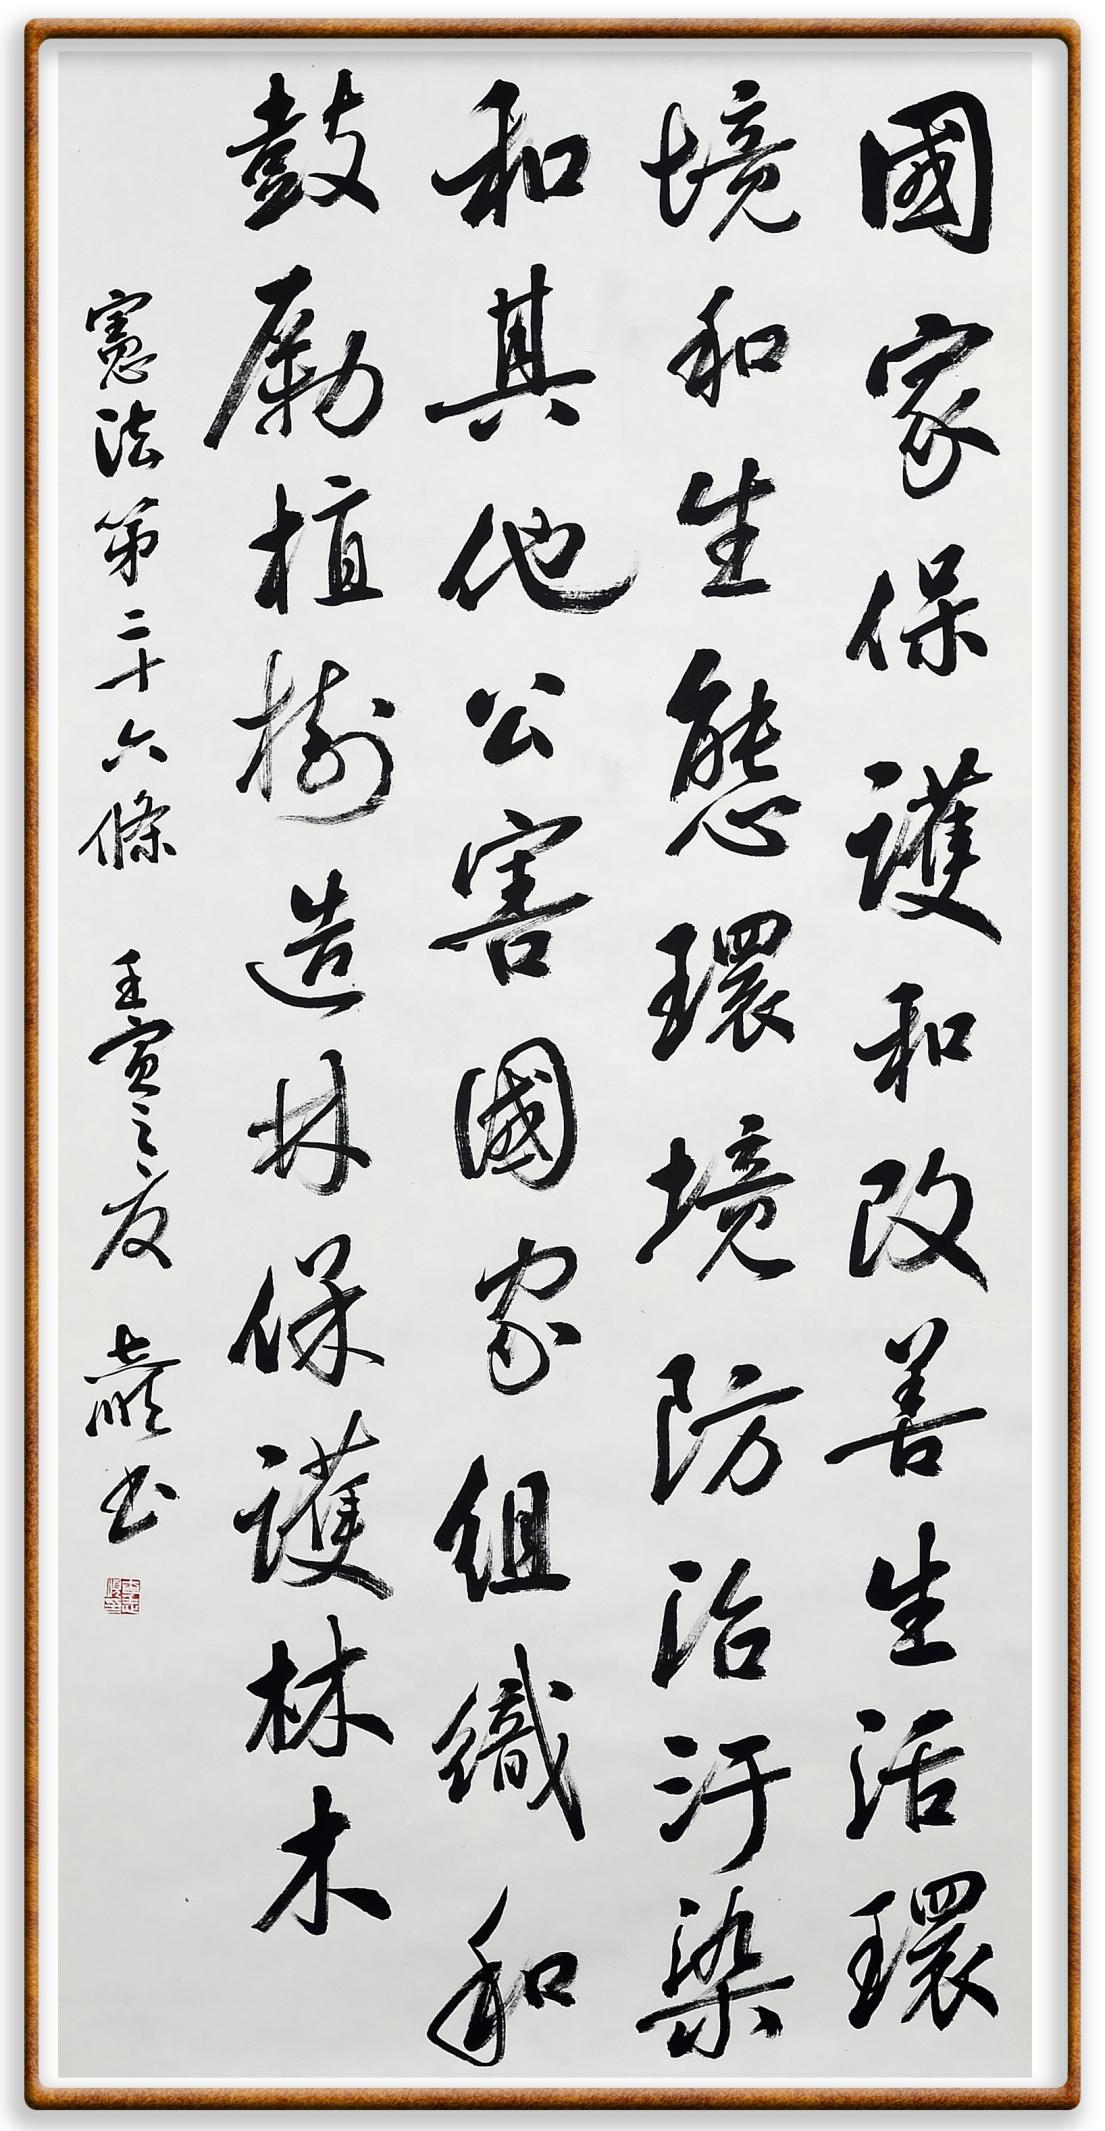 國家保護和改善生活環
境和生態環境防治汙染
和其他公害國家組織和
鼓勵植樹造林保護林木
憲法第二十六條 壬寅之夏 書